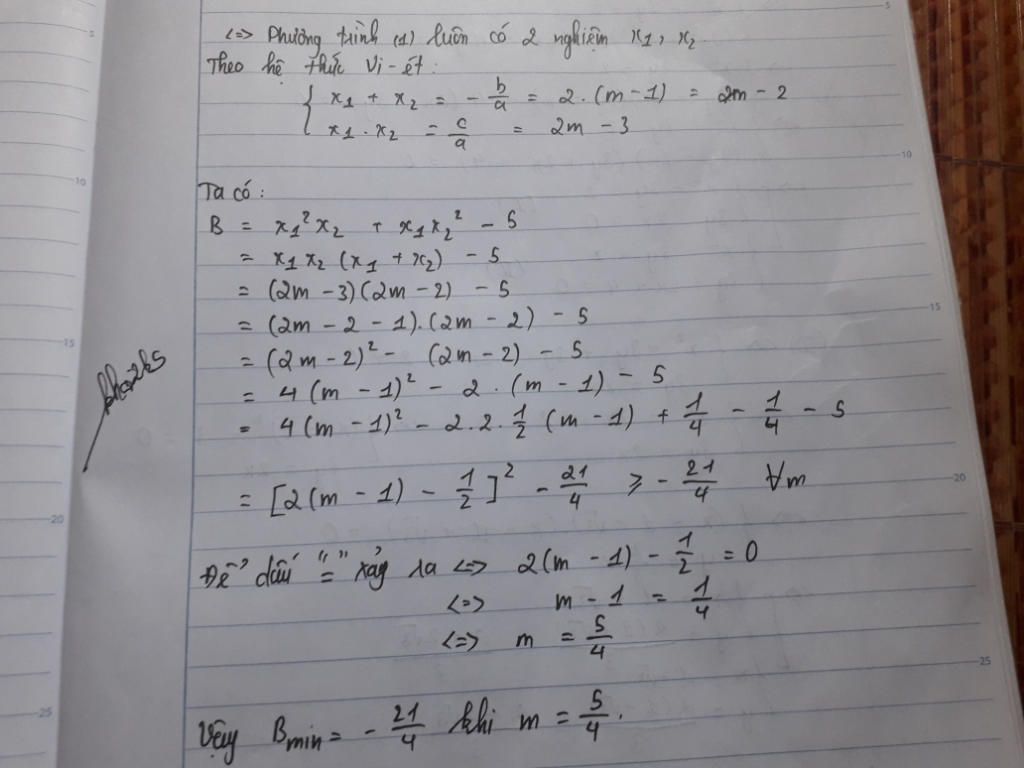 <=> Phương trình (1) luôn có 2 nghiệm x₁, x₂
Theo hệ thức Vi-ét:
{ x₁ + x₂ = - b/a = 2.(m-1) = 2m - 2
x₁ . x₂ = c/a = 2m - 3
Ta có:
B = x₁²x₂ + x₁x₂² - 5
= x₁x₂ (x₁ + x₂) - 5
= (2m - 3)(2m - 2) - 5
= (2m - 2 - 1).(2m - 2) - 5
= (2m - 2)² - (2m - 2) - 5
= 4(m - 1)² - 2.(m - 1) - 5
= 4(m - 1)² - 2.2.1/2 (m - 1) + 1/4 - 1/4 - 5
= [2(m - 1) - 1/2]² - 21/4 ≥ - 21/4 ∀m
Để dấu "=" xảy ra <=> 2(m - 1) - 1/2 = 0
<=> m - 1 = 1/4
<=> m = 5/4
Vậy Bmin = - 21/4 khi m = 5/4.
5
10
15
20
25
5
10
15
20
25